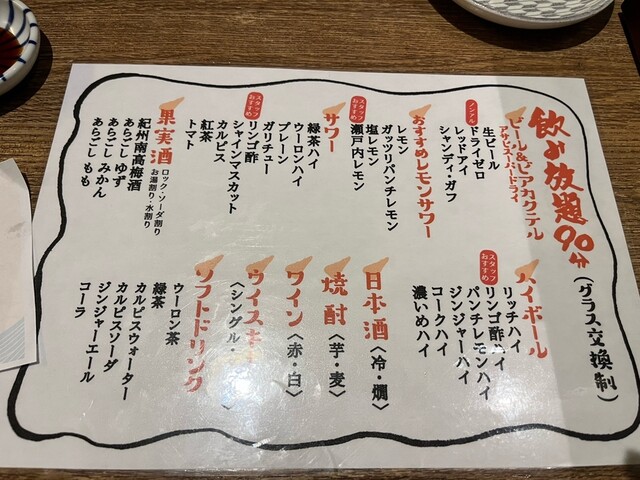 飲み放題90分
(グラス交換制)
ビール&ビアカクテル
アサヒスーパードライ
生ビール
ノンアル
ドライゼロ
レッドアイ
シャンディ・ガフ
おすすめレモンサワー
レモン
ガッツリパンチレモン
塩レモン
スタッフおすすめ
瀬戸内レモン
サワー
緑茶ハイ
ウーロンハイ
プレーン
ガリチュー
スタッフおすすめ
リンゴ酢
シャインマスカット
カルピス
紅茶
トマト
果実酒
ロック・ソーダ割り
お湯割り・水割り
紀州南高梅酒
あらごし ゆず
あらごし みかん
あらごし もも
ハイボール
リッチハイ
スタッフおすすめ
リンゴ酢ハイ
パンチレモンハイ
ジンジャーハイ
コークハイ
濃いめハイ
日本酒〈冷・燗〉
焼酎〈芋・麦〉
ワイン〈赤・白〉
ウイスキー
〈シングル・
ソフトドリンク
ウーロン茶
緑茶
カルピスウォーター
カルピスソーダ
ジンジャーエール
コーラ